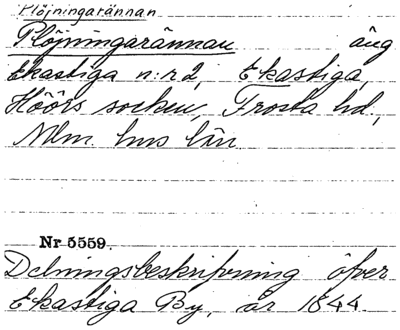 Plöjningarännan
Plöjningarännan äng
Ekastiga n:r 2, Ekastiga,
Höörs socken, Frosta hd,
Mlm. hus län.
Nr 5559.
Delningsbeskrifvning öfver
Ekastiga By, år 1844.